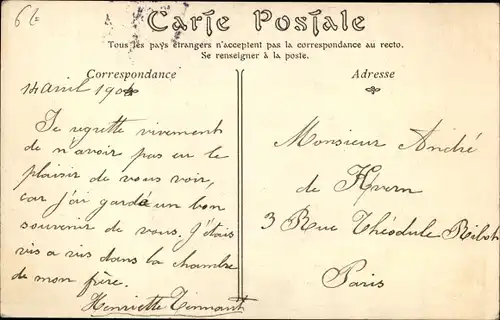 6f
Carte Postale
Tous les pays étrangers n'acceptent pas la correspondance au recto.
Se renseigner à la poste.
Correspondance
14 avril 1904
Je regrette vivement
de n'avoir pas eu le
plaisir de vous voir,
car j'ai gardé un bon
souvenir de vous. J'étais
vis a vis dans la chambre
de mon frère.
Henriette
Adresse
Monsieur André
de
3 Rue Théodule Ribot
Paris